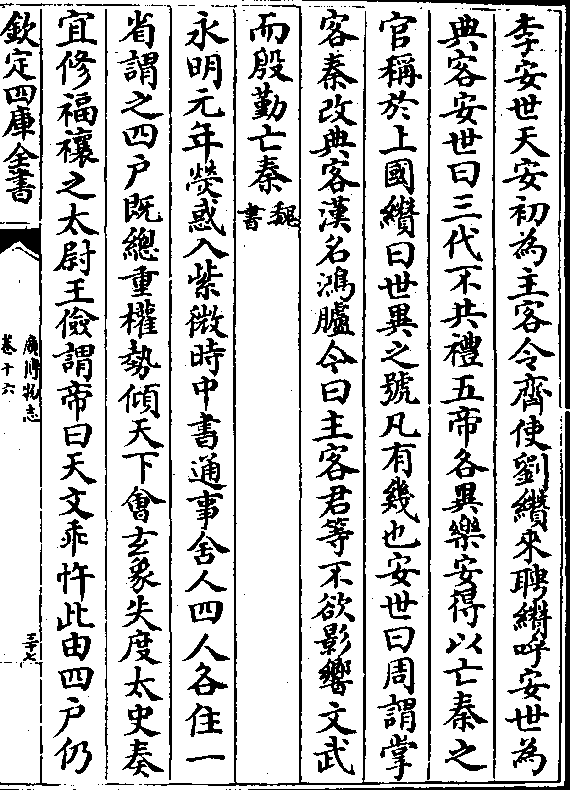 李安世天安初為主客令齊使劉纘來聘纘呼安世為
典客安世曰三代不共禮五帝各異樂安得以亡秦之
官稱於上國纘曰世異之號凡有幾也安世曰周謂掌
客秦改典客漢名鴻臚今曰主客君等不欲影響文武
而殷勤亡秦魏書
永明元年熒惑入紫微時中書通事舍人四人各住一
省謂之四戶既總重權勢傾天下會玄象失度太史奏
宜修福禳之太尉王儉謂帝曰天文乖忤此由四戶仍
欽定四庫全書
廣博物志
卷十六
三十七